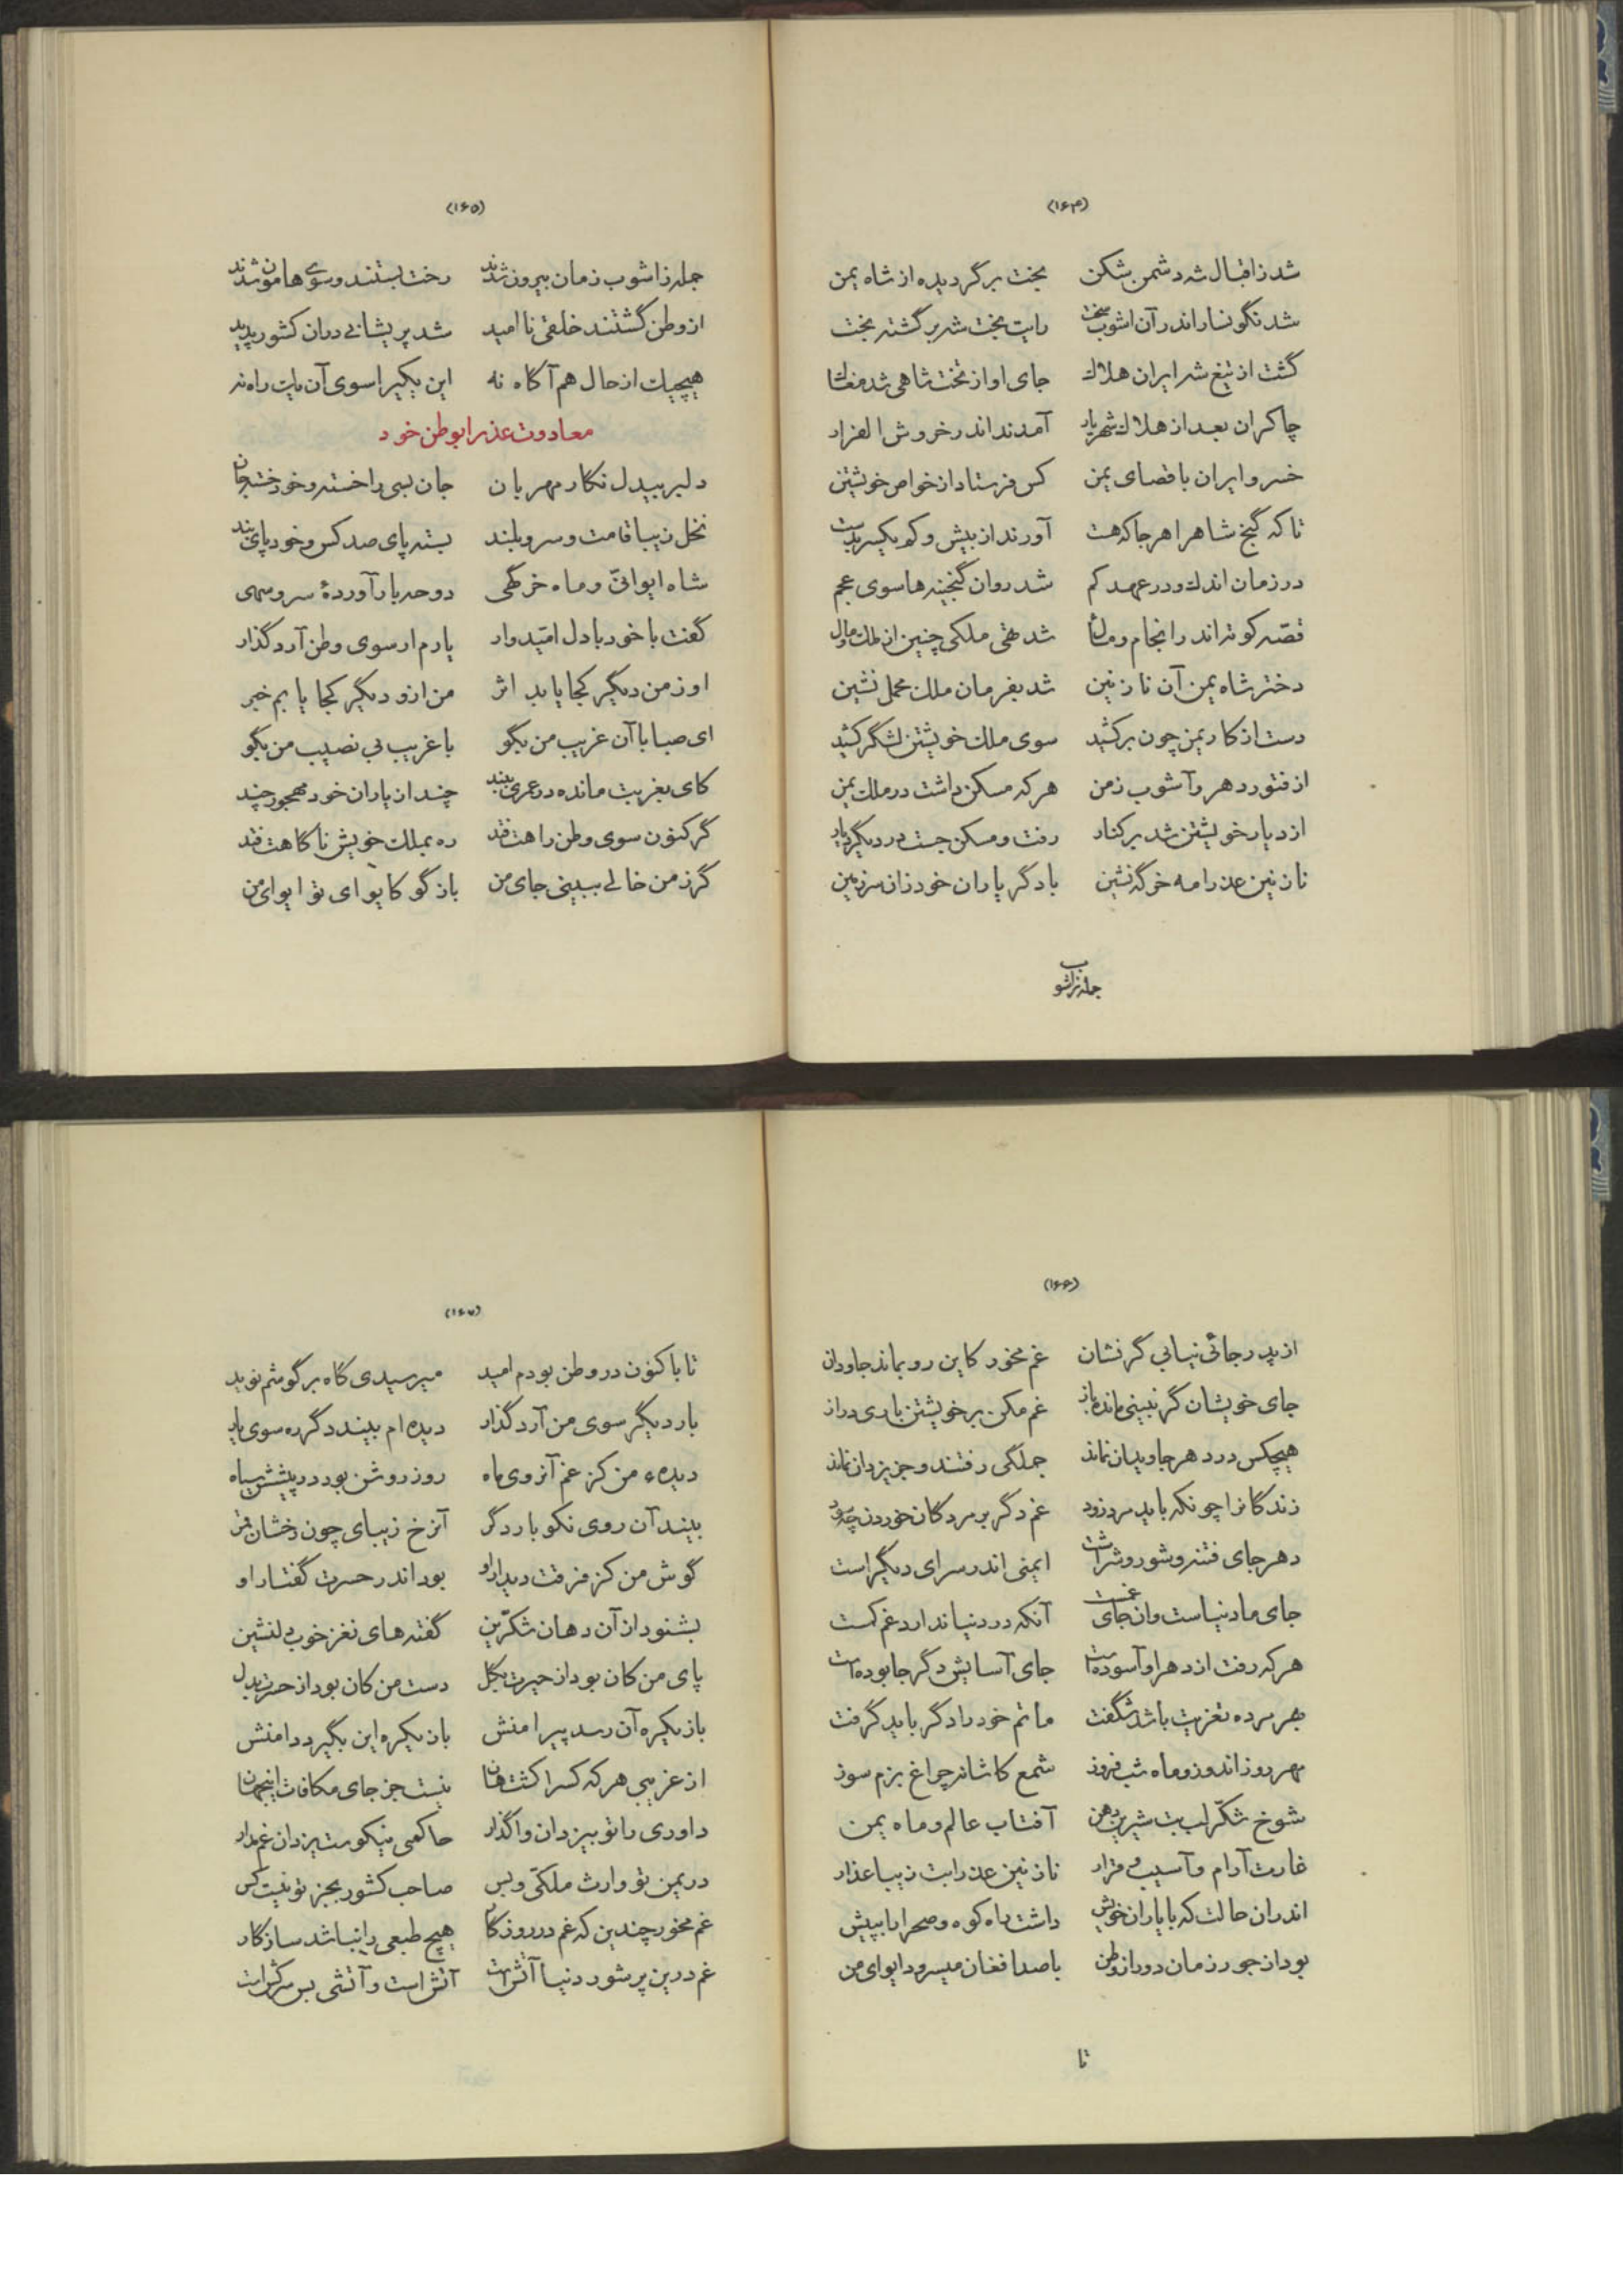 (۱۶۴)
شد ز اقبال شه دشمن شکن بخت برگردیده از شاه یمن
شد نگونسار اندر آن اشوب سخت رایت بخت شه برگشته بخت
گشت از تیغ شه ایران هلاک جای او از تخت شاهی شد مغاک
چاکران بعد از هلاک شهریار آمدند اندر خروش الفرار
خسرو ایران باقصای یمن کس فرستاد از خواص خویشتن
تا که گنج شاه را هر جا که هست آورند از بیش و کم یکسر بدست
در زمان اندک و در عهد کم شد روان گنجینه ها سوی عجم
قصّه کوته اندر انجام و مال شد تهی ملکی چنین از ملک و مال
دختر شاه یمن آن نازنین شد بفرمان ملک محمل نشین
دست از کار یمن چون برکشید سوی ملک خویشتن لشگر کشید
از فتور دهر و آشوب زمن هر که مسکن داشت در ملک یمن
از دیار خویشتن شد بر کنار رفت و مسکن جست در دیگر دیار
نازنین عذرا مه خرگه نشین با دگر یاران خود زان سرزمین
جمله ز اشوب
(۱۶۵)
جمله ز اشوب زمان بیرون شدند رخت بستند و سوی هامون شدند
از وطن گشتند خلقی نا امید شد پریشانی دران کشور پدید
هیچیک از حال هم آگاه نه این یکیرا سوی آن یک راه نه
معادوت عذرا بوطن خود
دلبر بیدل نگار مهربان جان بسی را خسته و خود خسته جان
نخل زیبا قامت و سرو بلند بسته پای صد کس و خود پای بند
شاه ایوانیّ و ماه خرگهی دوحه بار آوردۀ سرو سهی
گفت با خود با دل امّیدوار یارم ار سوی وطن آرد گذار
او ز من دیگر کجا یابد اثر من ازو دیگر کجا یابم خبر
ای صبا با آن غریب من بگو با غریب بی نصیب من بگو
کای بغربت مانده در عمری ببند چند از یاران خود مهجور چند
گر کنون سوی وطن راهت فتد ره بملک خویش ناگاهت فتد
گر ز من خالی ببینی جای من باز گو کایوای تو ایوای من
(۱۶۶)
از پدر جائی نیابی گر نشان غم مخور کاین رو بماند جاودان
جای خویشان گر نبینی مانده باز غم مکن بر خویشتن باری دراز
هیچکس در دهر جاویدان نماند جملگی رفتند و جز یزدان نماند
زندگانرا چونکه باید مرد زود غم دگر بر مردگان خوردن چه سود
دهر جای فتنه و شور و شر است ایمنی اندر سرای دیگر است
جای ما دنیاست وان جای غمست آنکه در دنیا ندارد غم کست
هر که رفت از دهر او آسوده است جای آسایش دگر جا بوده است
بهر مرده تعزیت باشد شگفت ماتم خود را دگر باید گرفت
مهر روز اندوز و ماه شب فروز شمع کاشانه چراغ بزم سوز
شوخ شکّر لب بت شیرین دهن آفتاب عالم و ماه یمن
غارت آرام و آسیب قرار نازنین عذرا بت زیبا عذار
اندران حالت که با یاران خویش داشت راه کوه و صحرا را بپیش
بود از جور زمان دور از وطن با صد افغان میسرود ایوای من
تا
(۱۶۷)
تا باکنون در وطن بودم امید میرسیدی گاه بر گوشم نوید
بار دیگر سوی من آرد گذار دیده ام بیند دگر ره سوی یار
دیدهء من کز غم آنروی ماه روز روشن بود در پیشش سیاه
بیند آن روی نکو بار دگر آنرخ زیبای چون رخشان قمر
گوش من کز فرقت دیدار او بود اندر حسرت گفتار او
بشنود از آن دهان شکّرین گفته های نغز خوب دلنشین
پای من کان بود از حیرت بگل دست من کان بود از حسرت بدل
باز یکره آن رسد پیرامنش باز یکره این بگیرد دامنش
از غریبی هر که کسرا کشت هان نیست جز جای مکافات اینجهان
داوری را تو بیزدان واگذار حاکمی نیکوست یزدان غم مدار
در یمن تو وارث ملکّی و بس صاحب کشور بجز تو نیست کس
غم مخور چندین که غم در روزگار هیچ طبعی را نباشد سازگار
غم درین پر شور دنیا آتش است آتش است و آتشی بس سرکش است